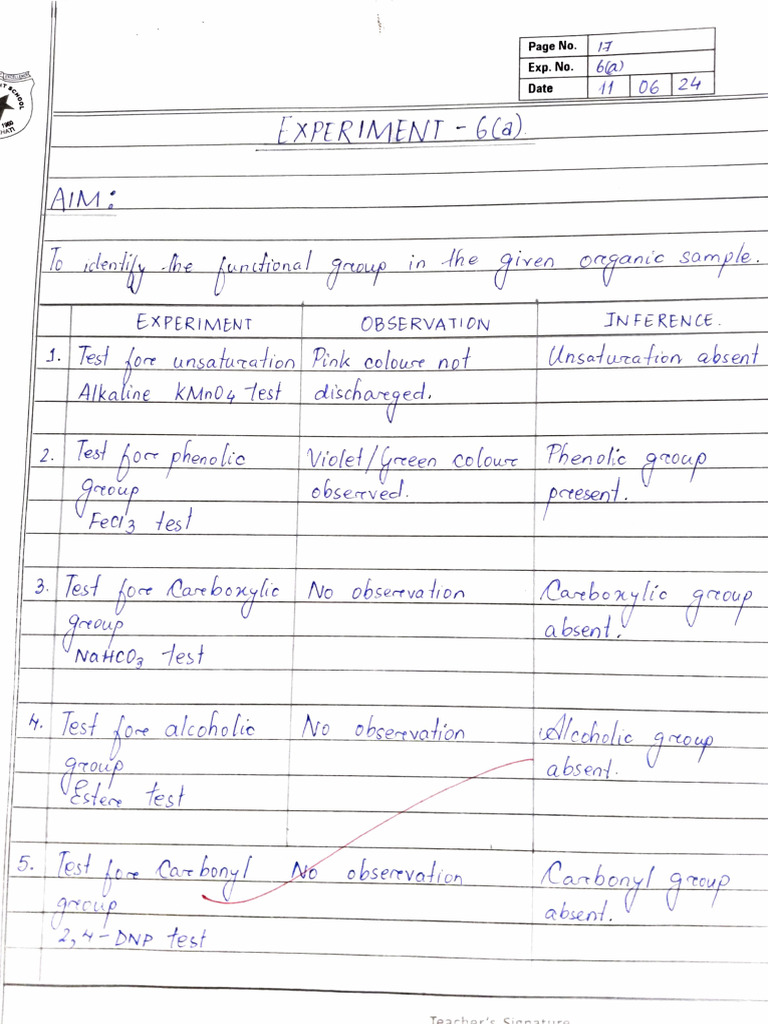 Page No. 17
Exp. No. 6(a)
Date 11 06 24
SCHOOL
1960
EXPERIMENT - 6(a).
AIM:
To identify the functional group in the given organic sample.
EXPERIMENT OBSERVATION INFERENCE.
1. Test for unsaturation Pink colour not Unsaturation absent
Alkaline KMnO4 test discharged.
2. Test for phenolic Violet/Green colour Phenolic group
group observed. present.
FeCl3 test
3. Test for Carboxylic No observation Carboxylic group
group absent.
NaHCO3 test
4. Test for alcoholic No observation Alcoholic group
group absent.
Ester test
5. Test for Carbonyl No observation Carbonyl group
group absent.
2,4-DNP test
Teacher's Signature